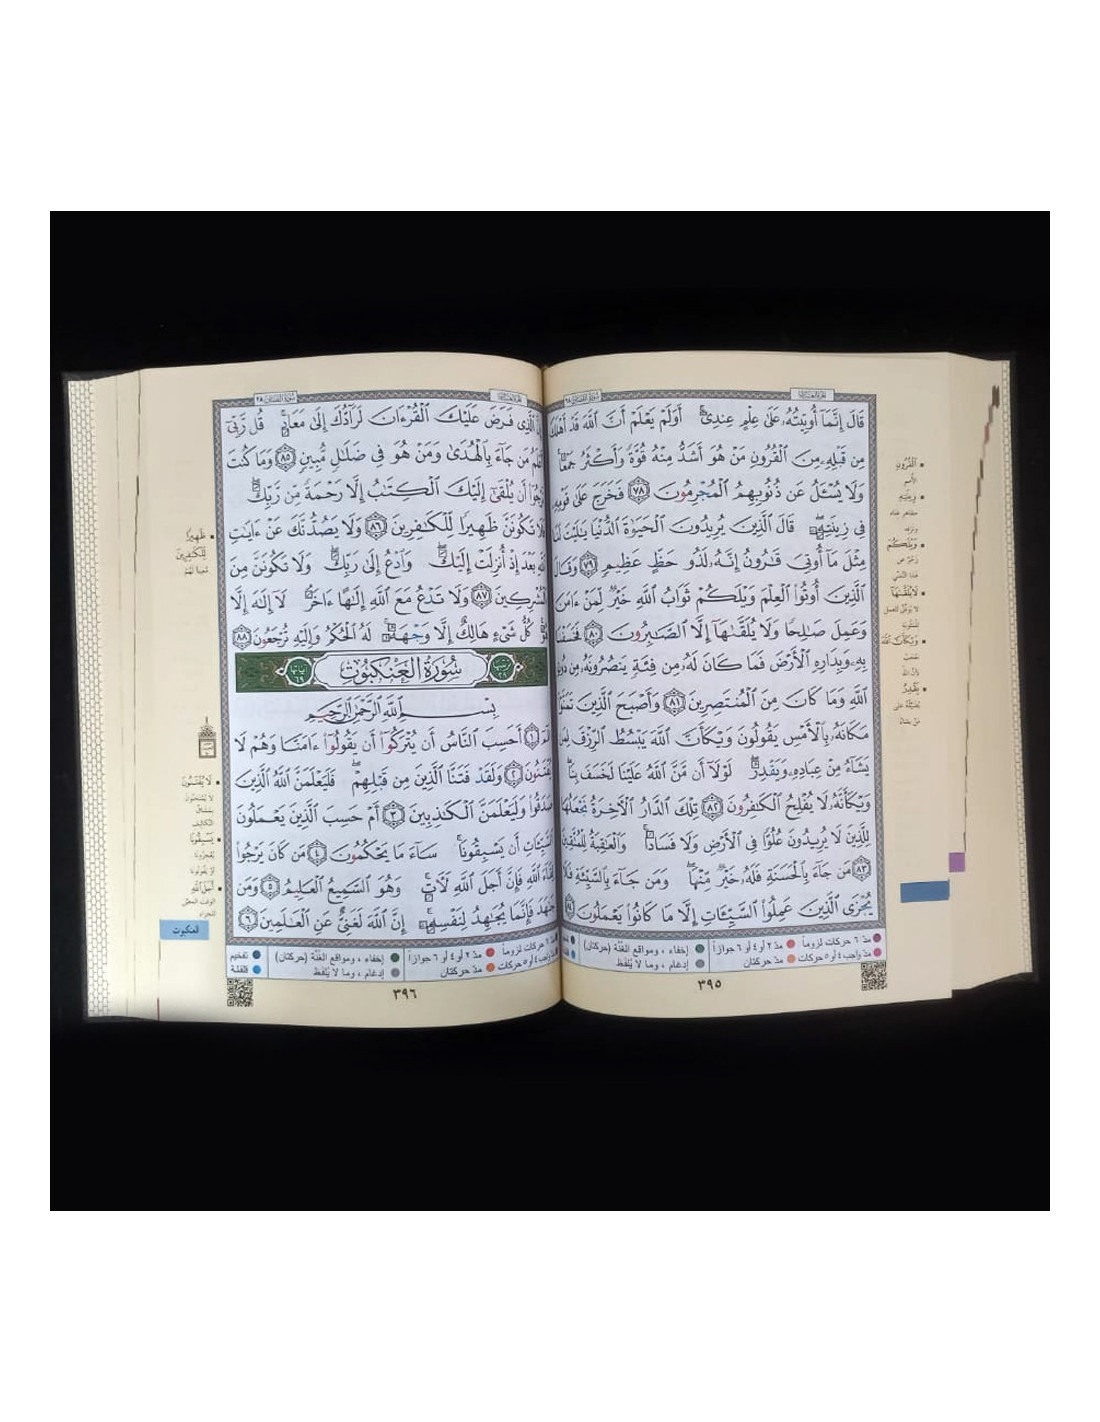 سورة القصص ٢٨
قَالَ إِنَّمَآ أُوتِيتُهُۥ عَلَىٰ عِلْمٍ عِندِىٓ ۚ أَوَلَمْ يَعْلَمْ أَنَّ ٱللَّهَ قَدْ أَهْلَكَ
مِن قَبْلِهِۦ مِنَ ٱلْقُرُونِ مَنْ هُوَ أَشَدُّ مِنْهُ قُوَّةً وَأَكْثَرُ جَمْعًا ۚ
وَلَا يُسْـَٔلُ عَن ذُنُوبِهِمُ ٱلْمُجْرِمُونَ ٧٨ فَخَرَجَ عَلَىٰ قَوْمِهِۦ
فِى زِينَتِهِۦ ۖ قَالَ ٱلَّذِينَ يُرِيدُونَ ٱلْحَيَوٰةَ ٱلدُّنْيَا يَٰلَيْتَ لَنَا
مِثْلَ مَآ أُوتِىَ قَٰرُونُ إِنَّهُۥ لَذُو حَظٍّ عَظِيمٍ ٧٩ وَقَالَ
ٱلَّذِينَ أُوتُوا۟ ٱلْعِلْمَ وَيْلَكُمْ ثَوَابُ ٱللَّهِ خَيْرٌ لِّمَنْ ءَامَنَ
وَعَمِلَ صَٰلِحًا وَلَا يُلَقَّىٰهَآ إِلَّا ٱلصَّٰبِرُونَ ٨٠ فَخَسَفْنَا
بِهِۦ وَبِدَارِهِ ٱلْأَرْضَ فَمَا كَانَ لَهُۥ مِن فِئَةٍ يَنصُرُونَهُۥ مِن دُونِ
ٱللَّهِ وَمَا كَانَ مِنَ ٱلْمُنتَصِرِينَ ٨١ وَأَصْبَحَ ٱلَّذِينَ تَمَنَّوْا۟
مَكَانَهُۥ بِٱلْأَمْسِ يَقُولُونَ وَيْكَأَنَّ ٱللَّهَ يَبْسُطُ ٱلرِّزْقَ لِمَن
يَشَآءُ مِنْ عِبَادِهِۦ وَيَقْدِرُ ۖ لَوْلَآ أَن مَّنَّ ٱللَّهُ عَلَيْنَا لَخَسَفَ بِنَا ۖ
وَيْكَأَنَّهُۥ لَا يُفْلِحُ ٱلْكَٰفِرُونَ ٨٢ تِلْكَ ٱلدَّارُ ٱلْـَٔاخِرَةُ نَجْعَلُهَا
لِلَّذِينَ لَا يُرِيدُونَ عُلُوًّا فِى ٱلْأَرْضِ وَلَا فَسَادًا ۚ وَٱلْعَٰقِبَةُ لِلْمُتَّقِينَ
٨٣ مَن جَآءَ بِٱلْحَسَنَةِ فَلَهُۥ خَيْرٌ مِّنْهَا ۖ وَمَن جَآءَ بِٱلسَّيِّئَةِ فَلَا
يُجْزَى ٱلَّذِينَ عَمِلُوا۟ ٱلسَّيِّـَٔاتِ إِلَّا مَا كَانُوا۟ يَعْمَلُونَ ٨٤
ٱلْقُرُونِ
الأمم
زِينَتِهِ
وَيْلَكُمْ
لَا يُلَقَّىٰهَآ
وَيْكَأَنَّ ٱللَّهَ
يَقْدِرُ
مدّ ٦ حركات لزوماً مدّ ٢ أو ٤ أو ٦ جوازاً إخفاء ، ومواقع الغُنَّة (حركتان)
مدّ واجب ٤ أو ٥ حركات مدّ حركتان إدغام ، وما لا يُلفَظ
٣٩٥
سورة القصص ٢٨
ٱلَّذِى فَرَضَ عَلَيْكَ ٱلْقُرْءَانَ لَرَآدُّكَ إِلَىٰ مَعَادٍ ۚ قُل رَّبِّىٓ
أَعْلَمُ مَن جَآءَ بِٱلْهُدَىٰ وَمَنْ هُوَ فِى ضَلَٰلٍ مُّبِينٍ ٨٥ وَمَا كُنتَ
تَرْجُوٓا۟ أَن يُلْقَىٰٓ إِلَيْكَ ٱلْكِتَٰبُ إِلَّا رَحْمَةً مِّن رَّبِّكَ ۖ
فَلَا تَكُونَنَّ ظَهِيرًا لِّلْكَٰفِرِينَ ٨٦ وَلَا يَصُدُّنَّكَ عَنْ ءَايَٰتِ
ٱللَّهِ بَعْدَ إِذْ أُنزِلَتْ إِلَيْكَ ۖ وَٱدْعُ إِلَىٰ رَبِّكَ ۖ وَلَا تَكُونَنَّ مِنَ
ٱلْمُشْرِكِينَ ٨٧ وَلَا تَدْعُ مَعَ ٱللَّهِ إِلَٰهًا ءَاخَرَ ۘ لَآ إِلَٰهَ إِلَّا
هُوَ ۚ كُلُّ شَىْءٍ هَالِكٌ إِلَّا وَجْهَهُۥ ۚ لَهُ ٱلْحُكْمُ وَإِلَيْهِ تُرْجَعُونَ ٨٨
ترتيبها ٢٩ سُورَةُ الْعَنْكَبُوتِ آياتها ٦٩
بِسْمِ ٱللَّهِ ٱلرَّحْمَٰنِ ٱلرَّحِيمِ
الٓمٓ ١ أَحَسِبَ ٱلنَّاسُ أَن يُتْرَكُوٓا۟ أَن يَقُولُوٓا۟ ءَامَنَّا وَهُمْ لَا
يُفْتَنُونَ ٢ وَلَقَدْ فَتَنَّا ٱلَّذِينَ مِن قَبْلِهِمْ ۖ فَلَيَعْلَمَنَّ ٱللَّهُ ٱلَّذِينَ
صَدَقُوا۟ وَلَيَعْلَمَنَّ ٱلْكَٰذِبِينَ ٣ أَمْ حَسِبَ ٱلَّذِينَ يَعْمَلُونَ
ٱلسَّيِّـَٔاتِ أَن يَسْبِقُونَا ۚ سَآءَ مَا يَحْكُمُونَ ٤ مَن كَانَ يَرْجُوا۟
لِقَآءَ ٱللَّهِ فَإِنَّ أَجَلَ ٱللَّهِ لَـَٔاتٍ ۚ وَهُوَ ٱلسَّمِيعُ ٱلْعَلِيمُ ٥ وَمَن
جَٰهَدَ فَإِنَّمَا يُجَٰهِدُ لِنَفْسِهِۦٓ ۚ إِنَّ ٱللَّهَ لَغَنِىٌّ عَنِ ٱلْعَٰلَمِينَ ٦
ظَهِيرًا
لِّلْكَٰفِرِينَ
مُعيناً لهم
لَا يُفْتَنُونَ
لا يُمتحنون
يَسْبِقُونَا
أَجَلَ ٱللَّهِ
العنكبوت
مدّ ٦ حركات لزوماً مدّ ٢ أو ٤ أو ٦ جوازاً إخفاء ، ومواقع الغُنَّة (حركتان) تفخيم
مدّ واجب ٤ أو ٥ حركات مدّ حركتان إدغام ، وما لا يُلفَظ قلقلة
٣٩٦